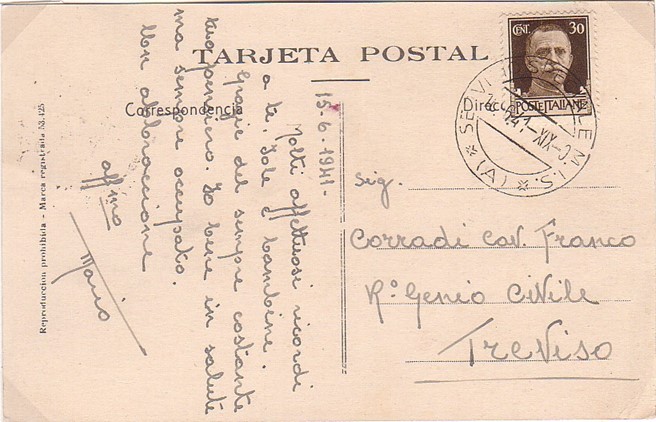 TARJETA POSTAL
CENT. 30
POSTE ITALIANE
Correspondencia
Direcc
15-6-1941-
Molti affettuosi ricordi
a te, Iole e bambine.
Grazie del sempre costante
tuo pensiero. Io bene in salute
ma sempre occupato.
Un abbraccione
aff/mo
Mario
Sig.
Corradi Cav. Franco
R° Genio Civile
Treviso
(A)
XIX
Reproduccion prohibida - Marca registrada 53.425